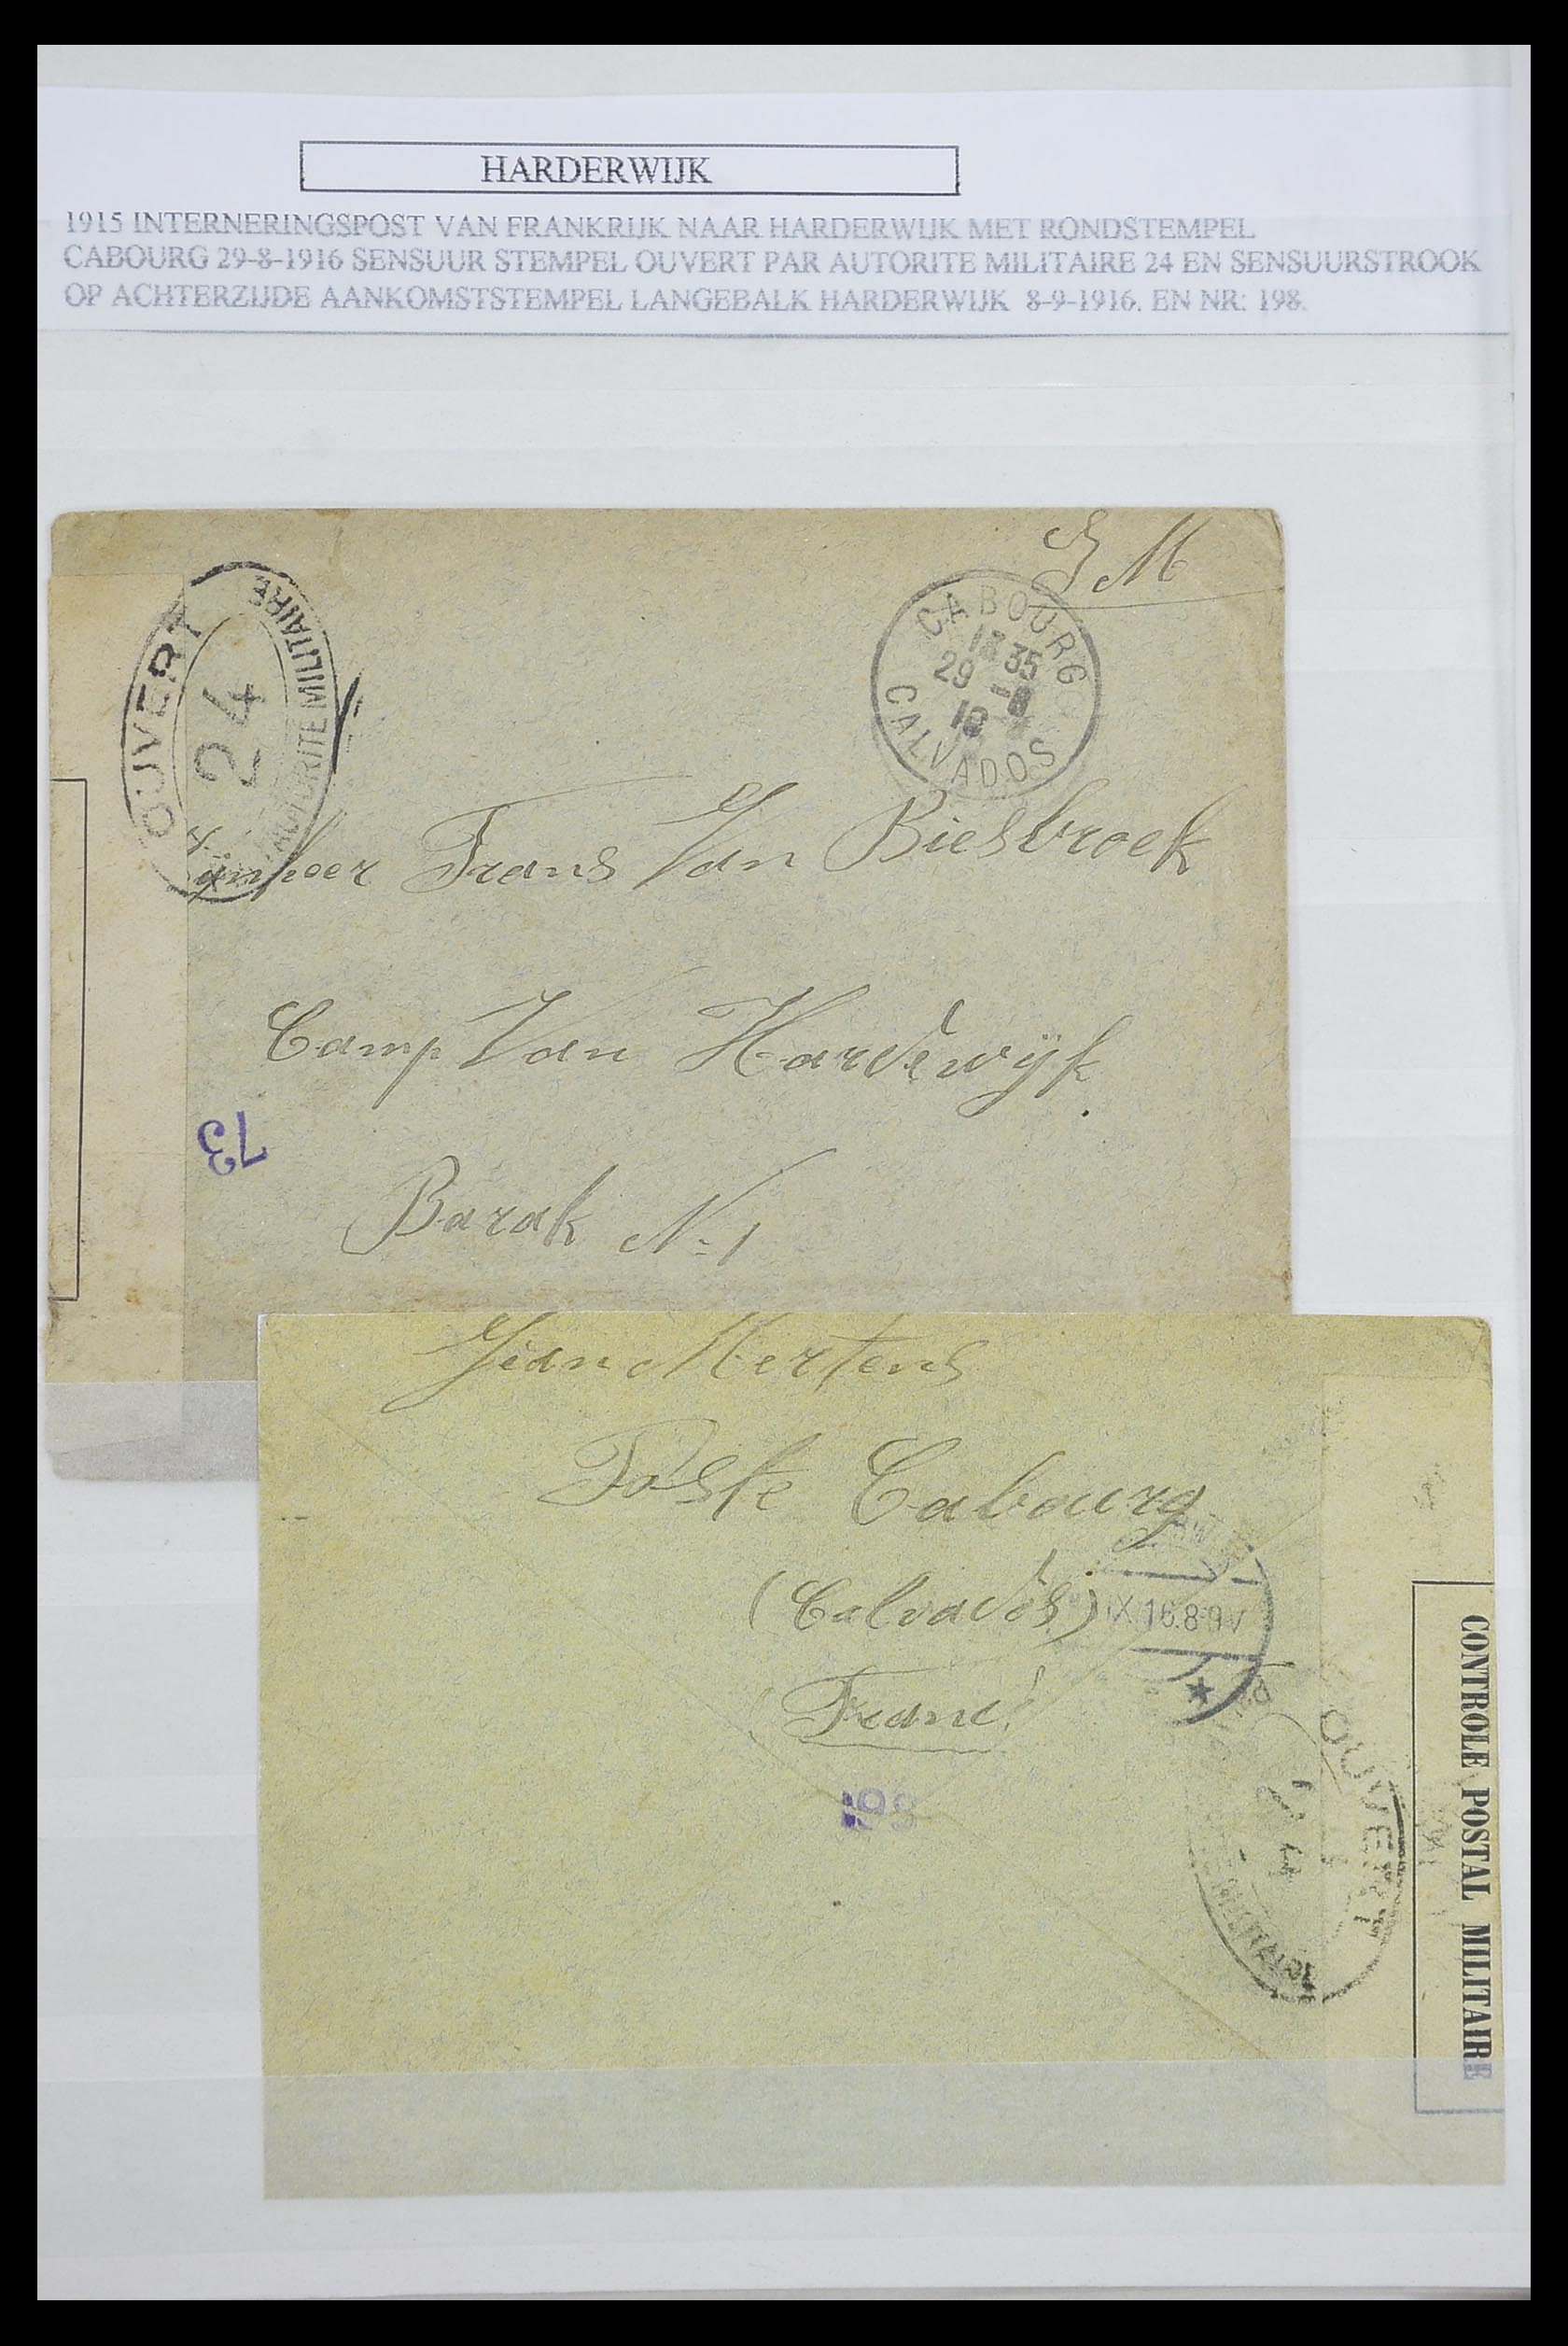 HARDERWIJK
1915 INTERNERINGSPOST VAN FRANKRIJK NAAR HARDERWIJK MET RONDSTEMPEL
CABOURG 29-8-1916 SENSUUR STEMPEL OUVERT PAR AUTORITE MILITAIRE 24 EN SENSUURSTROOK
OP ACHTERZIJDE AANKOMSTSTEMPEL LANGEBALK HARDERWIJK 8-9-1916. EN NR: 198.
S M
OUVERT
24
AUTORITE MILITAIRE
CABOURG
35
29 -8
CALVADOS
Frans Van Biesbroek
Camp Van Harderwijk
73
Barak N: 1
Jean Mertens
Poste Cabourg
(Calvados)
IX 16.8-9V
198
OUVERT
24
CONTROLE POSTAL MILITAIRE